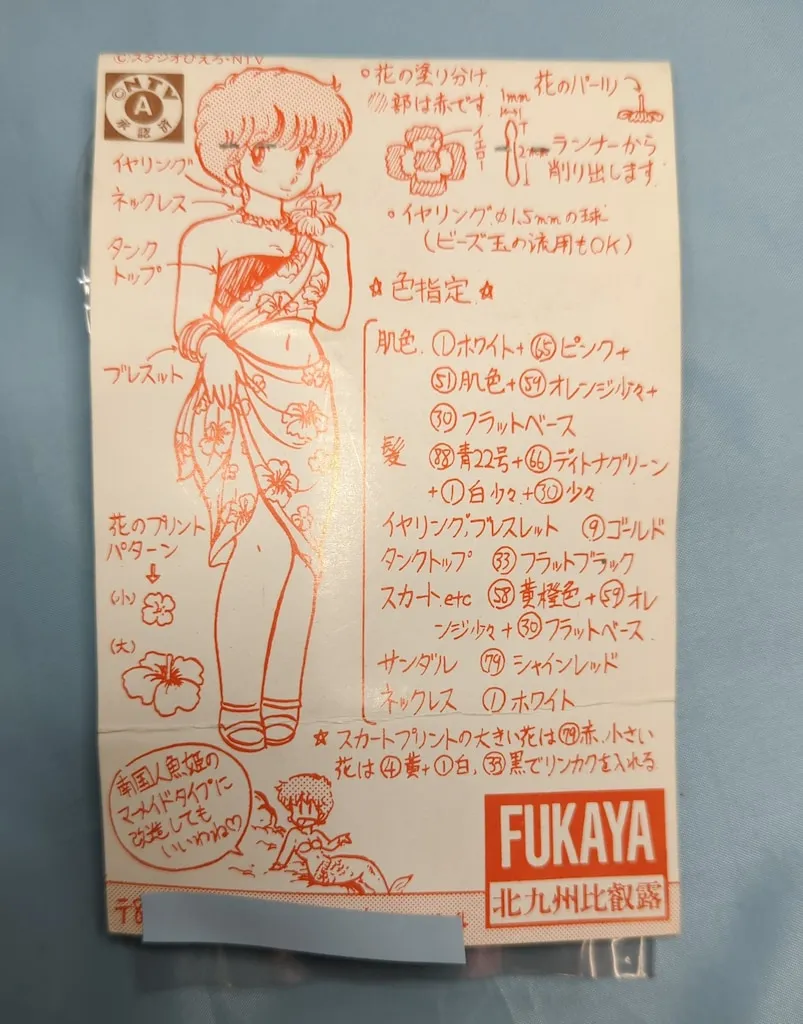 ©スタジオぴえろ・NTV
©NTV
A
承認済
イヤリング
ネックレス
タンク
トップ
ブレスット
花のプリント
パターン
(小)
(大)
南国人魚姫の
マーメイドタイプに
改造しても
いいわね♡
○花の塗り分け
部は赤です
イエロー
1mm
2mm
花のパーツ
ランナーから
削り出します
○イヤリングφ1.5mmの球
(ビーズ玉の流用もOK)
☆色指定☆
肌色 ①ホワイト+㊿ピンク+
㊿肌色+㊿オレンジ少々+
㉚フラットベース
髪 88青22号+66デイトナグリーン
+①白少々+㉚少々
イヤリング,ブレスレット ⑨ゴールド
タンクトップ ㉝フラットブラック
スカートetc 58黄橙色+59オレ
ンジ少々+㉚フラットベース
サンダル 79シャインレッド
ネックレス ①ホワイト
☆スカートプリントの大きい花は79赤、小さい
花は④黄+①白、㉝黒でリンカクを入れる
FUKAYA
北九州比叡露
〒8